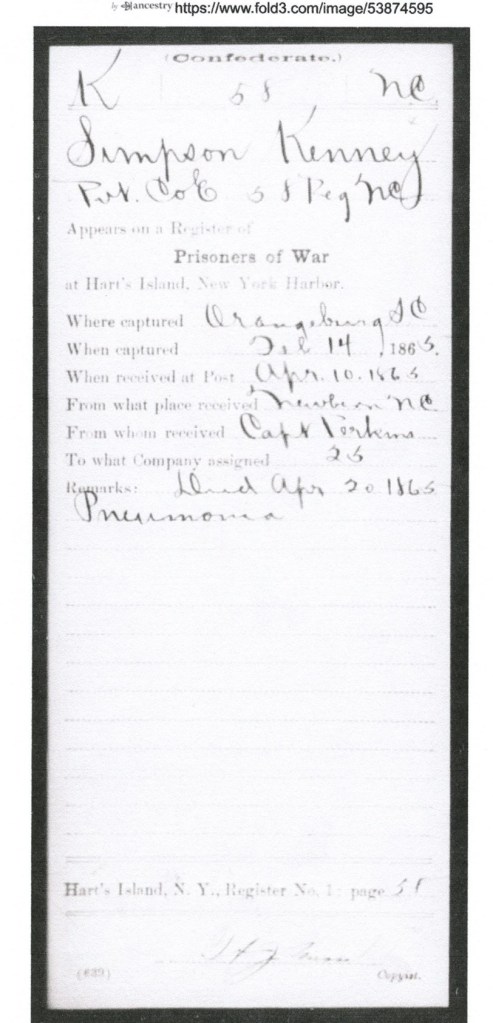 by ancestry https://www.fold3.com/image/53874595
(Confederate.)
K 58 NC
Simpson Kenney
Pvt. Co E 58 Reg NC
Appears on a Register of
Prisoners of War
at Hart's Island, New York Harbor.
Where captured Orangeburg SC
When captured Feb 14, 1865.
When received at Post Apr. 10. 1865
From what place received Newbern NC
From whom received Capt Perkins
To what Company assigned 25
Remarks: Died Apr 20 1865
Pneumonia
Hart's Island, N. Y., Register No. 1; page 58
(639) Copyist.